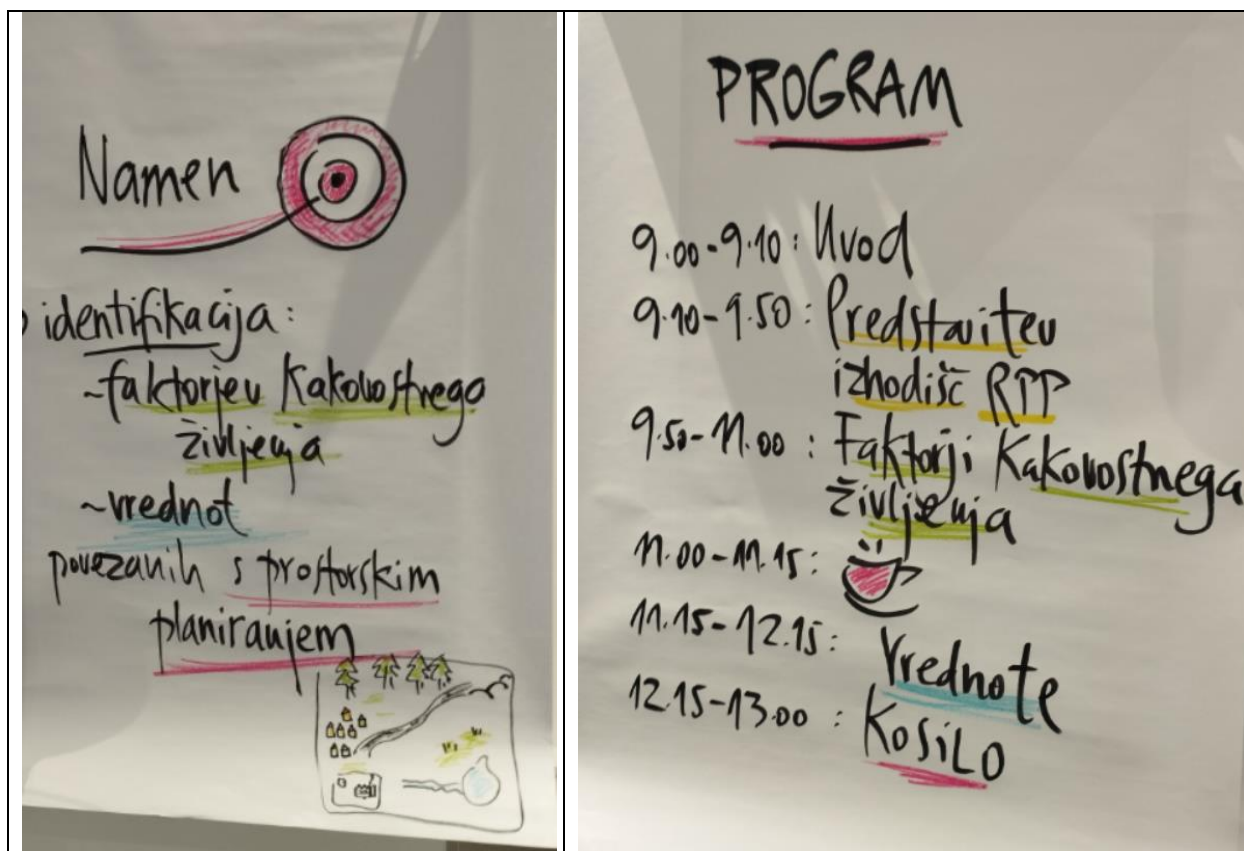 Namen
identifikacija:
~faktorjev kakovostnega
življenja
~vrednot
povezanih s prostorskim
planiranjem
PROGRAM
9.00-9.10: Uvod
9.10-9.50: Predstavitev
izhodišč RPP
9.50-11.00: Faktorji kakovostnega
življenja
11.00-11.15:
11.15-12.15: Vrednote
12.15-13.00: KOSILO